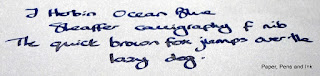 J Herbin Ocean Blue
Sheaffer calligraphy f nib
The quick brown fox jumps over the
lazy dog.
Paper, Pens and Ink